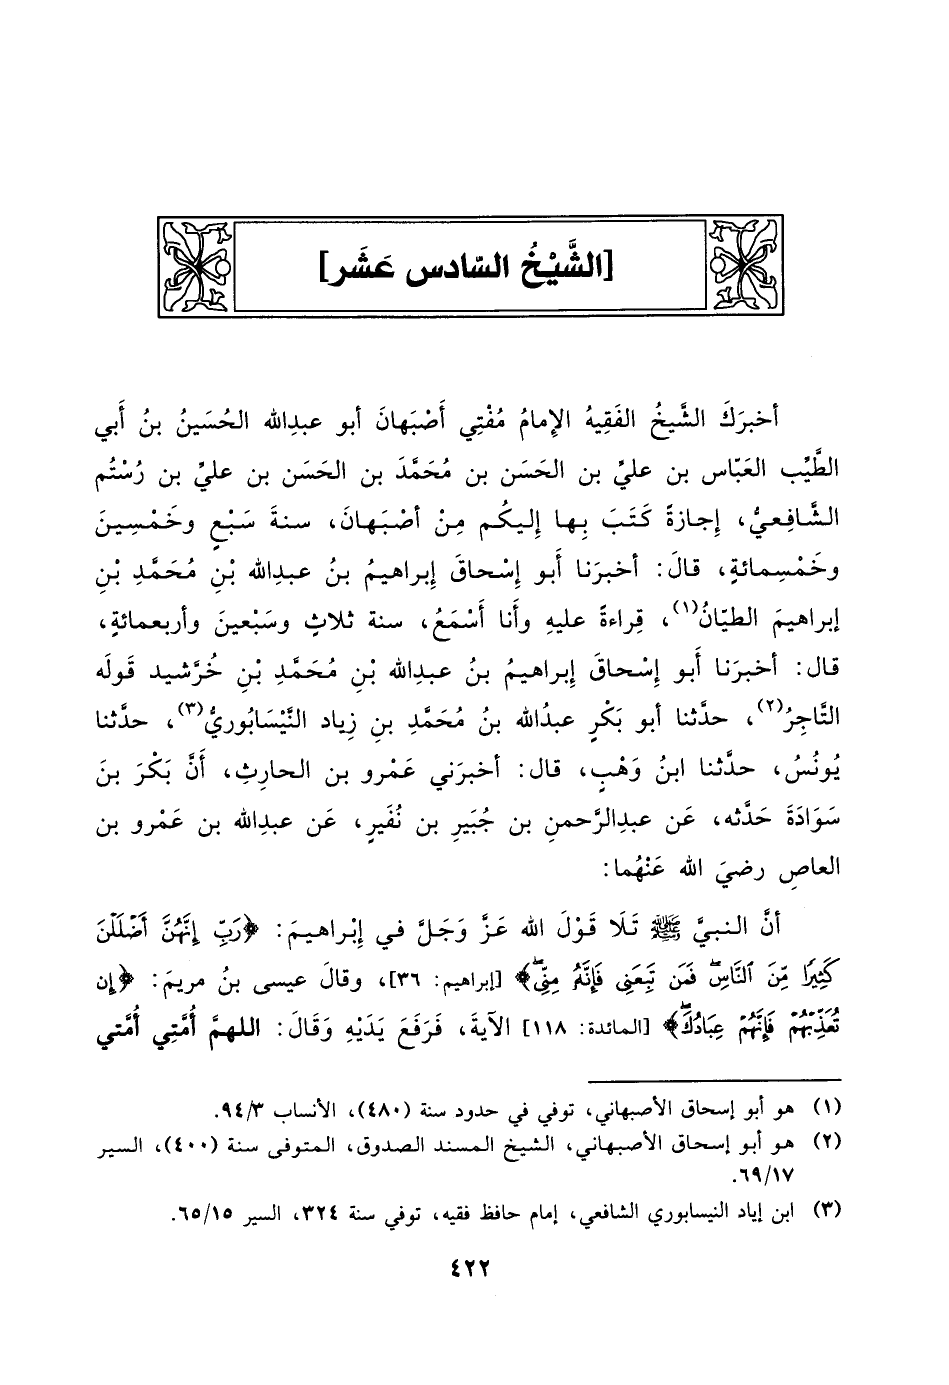 [الشَّيْخُ السّادس عَشَر]
أخبرَكَ الشَّيخُ الفَقِيهُ الإمامُ مُفْتِي أَصْبَهانَ أبو عبدِالله الحُسَينُ بنُ أَبي
الطَّيِّب العَبّاس بن عليِّ بن الحَسَن بن مُحَمَّدَ بن الحَسَن بن عليِّ بن رُسْتُم
الشَّافِعيُّ، إجازةً كَتَبَ بِها إليكُم مِنْ أصْبَهانَ، سنةَ سَبْعٍ وخَمْسِينَ
وخَمْسِمائةٍ، قالَ: أخبرَنا أَبو إسْحاقَ إبراهيمُ بنُ عبدِالله بْنِ مُحَمَّدِ بْنِ
إبراهيمَ الطيّانُ(١)، قِراءةً عليهِ وأنا أَسْمَعُ، سنة ثلاثٍ وسَبْعينَ وأربعمائةٍ،
قال: أخبرَنا أَبو إسْحاقَ إبراهيمُ بنُ عبدِالله بْنِ مُحَمَّدِ بْنِ خُرَّشيد قَولَه
التَّاجِرُ(٢)، حدَّثنا أبو بَكْرٍ عبدُالله بنُ مُحَمَّدِ بنِ زِياد النَّيْسَابُوريُّ(٣)، حدَّثنا
يُونُسُ، حدَّثنا ابنُ وَهْبٍ، قال: أخبرَني عَمْرو بن الحارِثِ، أَنَّ بَكْرَ بنَ
سَوَادَةَ حَدَّثه، عَن عبدِالرَّحمنِ بن جُبَيرِ بن نُفَيرٍ، عَن عبدِالله بن عَمْرو بن
العاصِ رضيَ الله عَنْهُما:
أنَّ النبيَّ ﷺ تَلَا قَوْلَ الله عَزَّ وَجَلَّ في إبْراهيمَ: ﴿رَبِّ إِنَّهُنَّ أَضْلَلْنَ
كَثِيرًا مِّنَ ٱلنَّاسِۖ فَمَن تَبِعَنِى فَإِنَّهُۥ مِنِّىۖ﴾ [إبراهيم: ٣٦]، وقالَ عيسى بنُ مريمَ: ﴿إِن
تُعَذِّبْهُمْ فَإِنَّهُمْ عِبَادُكَۖ﴾ [المائدة: ١١٨] الآيةَ، فَرَفَعَ يَدَيْهِ وَقَالَ: اللهمَّ أُمَّتِي أُمَّتي
(١) هو أبو إسحاق الأصبهاني، توفي في حدود سنة (٤٨٠)، الأنساب ٩٤/٣.
(٢) هو أبو إسحاق الأصبهاني، الشيخ المسند الصدوق، المتوفى سنة (٤٠٠)، السير
٦٩/١٧.
(٣) ابن إياد النيسابوري الشافعي، إمام حافظ فقيه، توفي سنة ٣٢٤، السير ٦٥/١٥.
٤٢٢